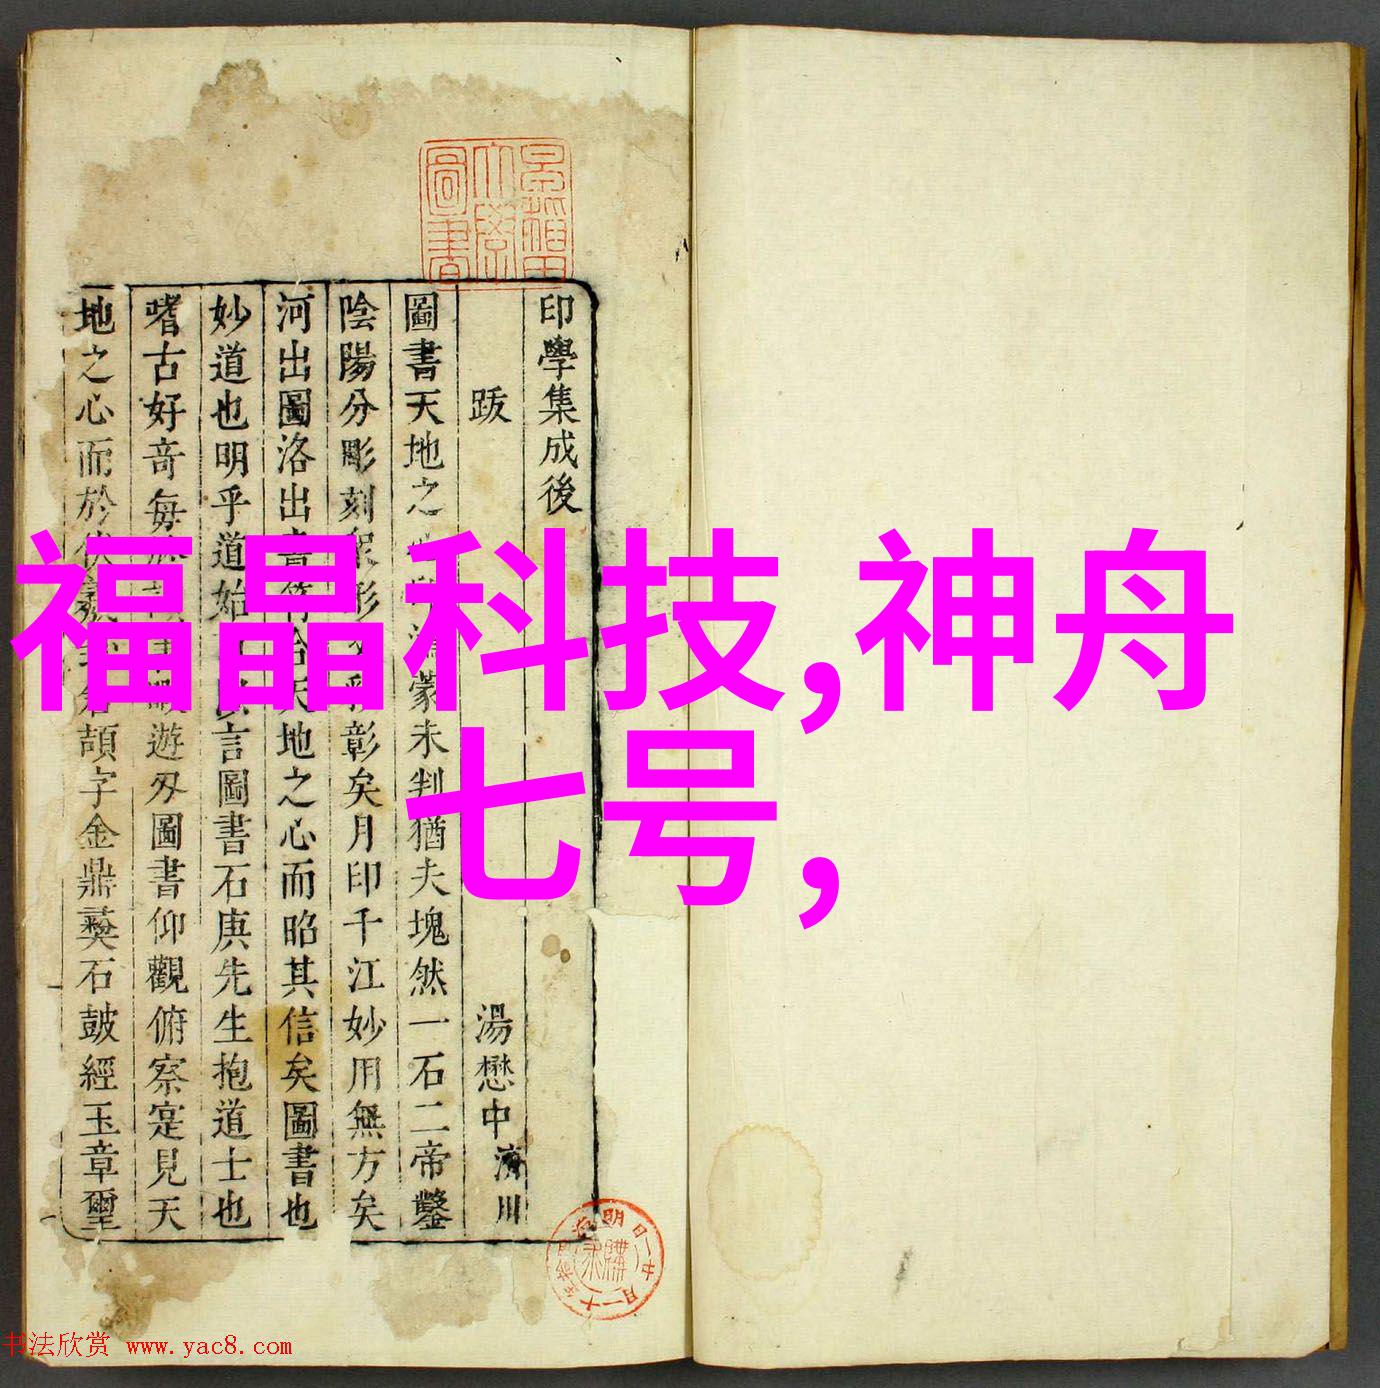 福晶科技,神舟
七号,
印學集成後
跋
湯懋中濟川
圖書天地之
蒙未判猶夫塊然一石二帝鑿
陰陽分彫刻衆形
乎彰矣月印千江妙用無方矣
河出圖洛出書符
天地之心而昭其信矣圖書也
妙道也明乎道始
以言圖書石庚先生抱道士也
嗜古好奇每
遊刃圖書仰觀俯察寔見天
地之心而於伏羲
倉頡字金鼎彝石鼓經玉章璽
書法欣赏 www.yac8.com